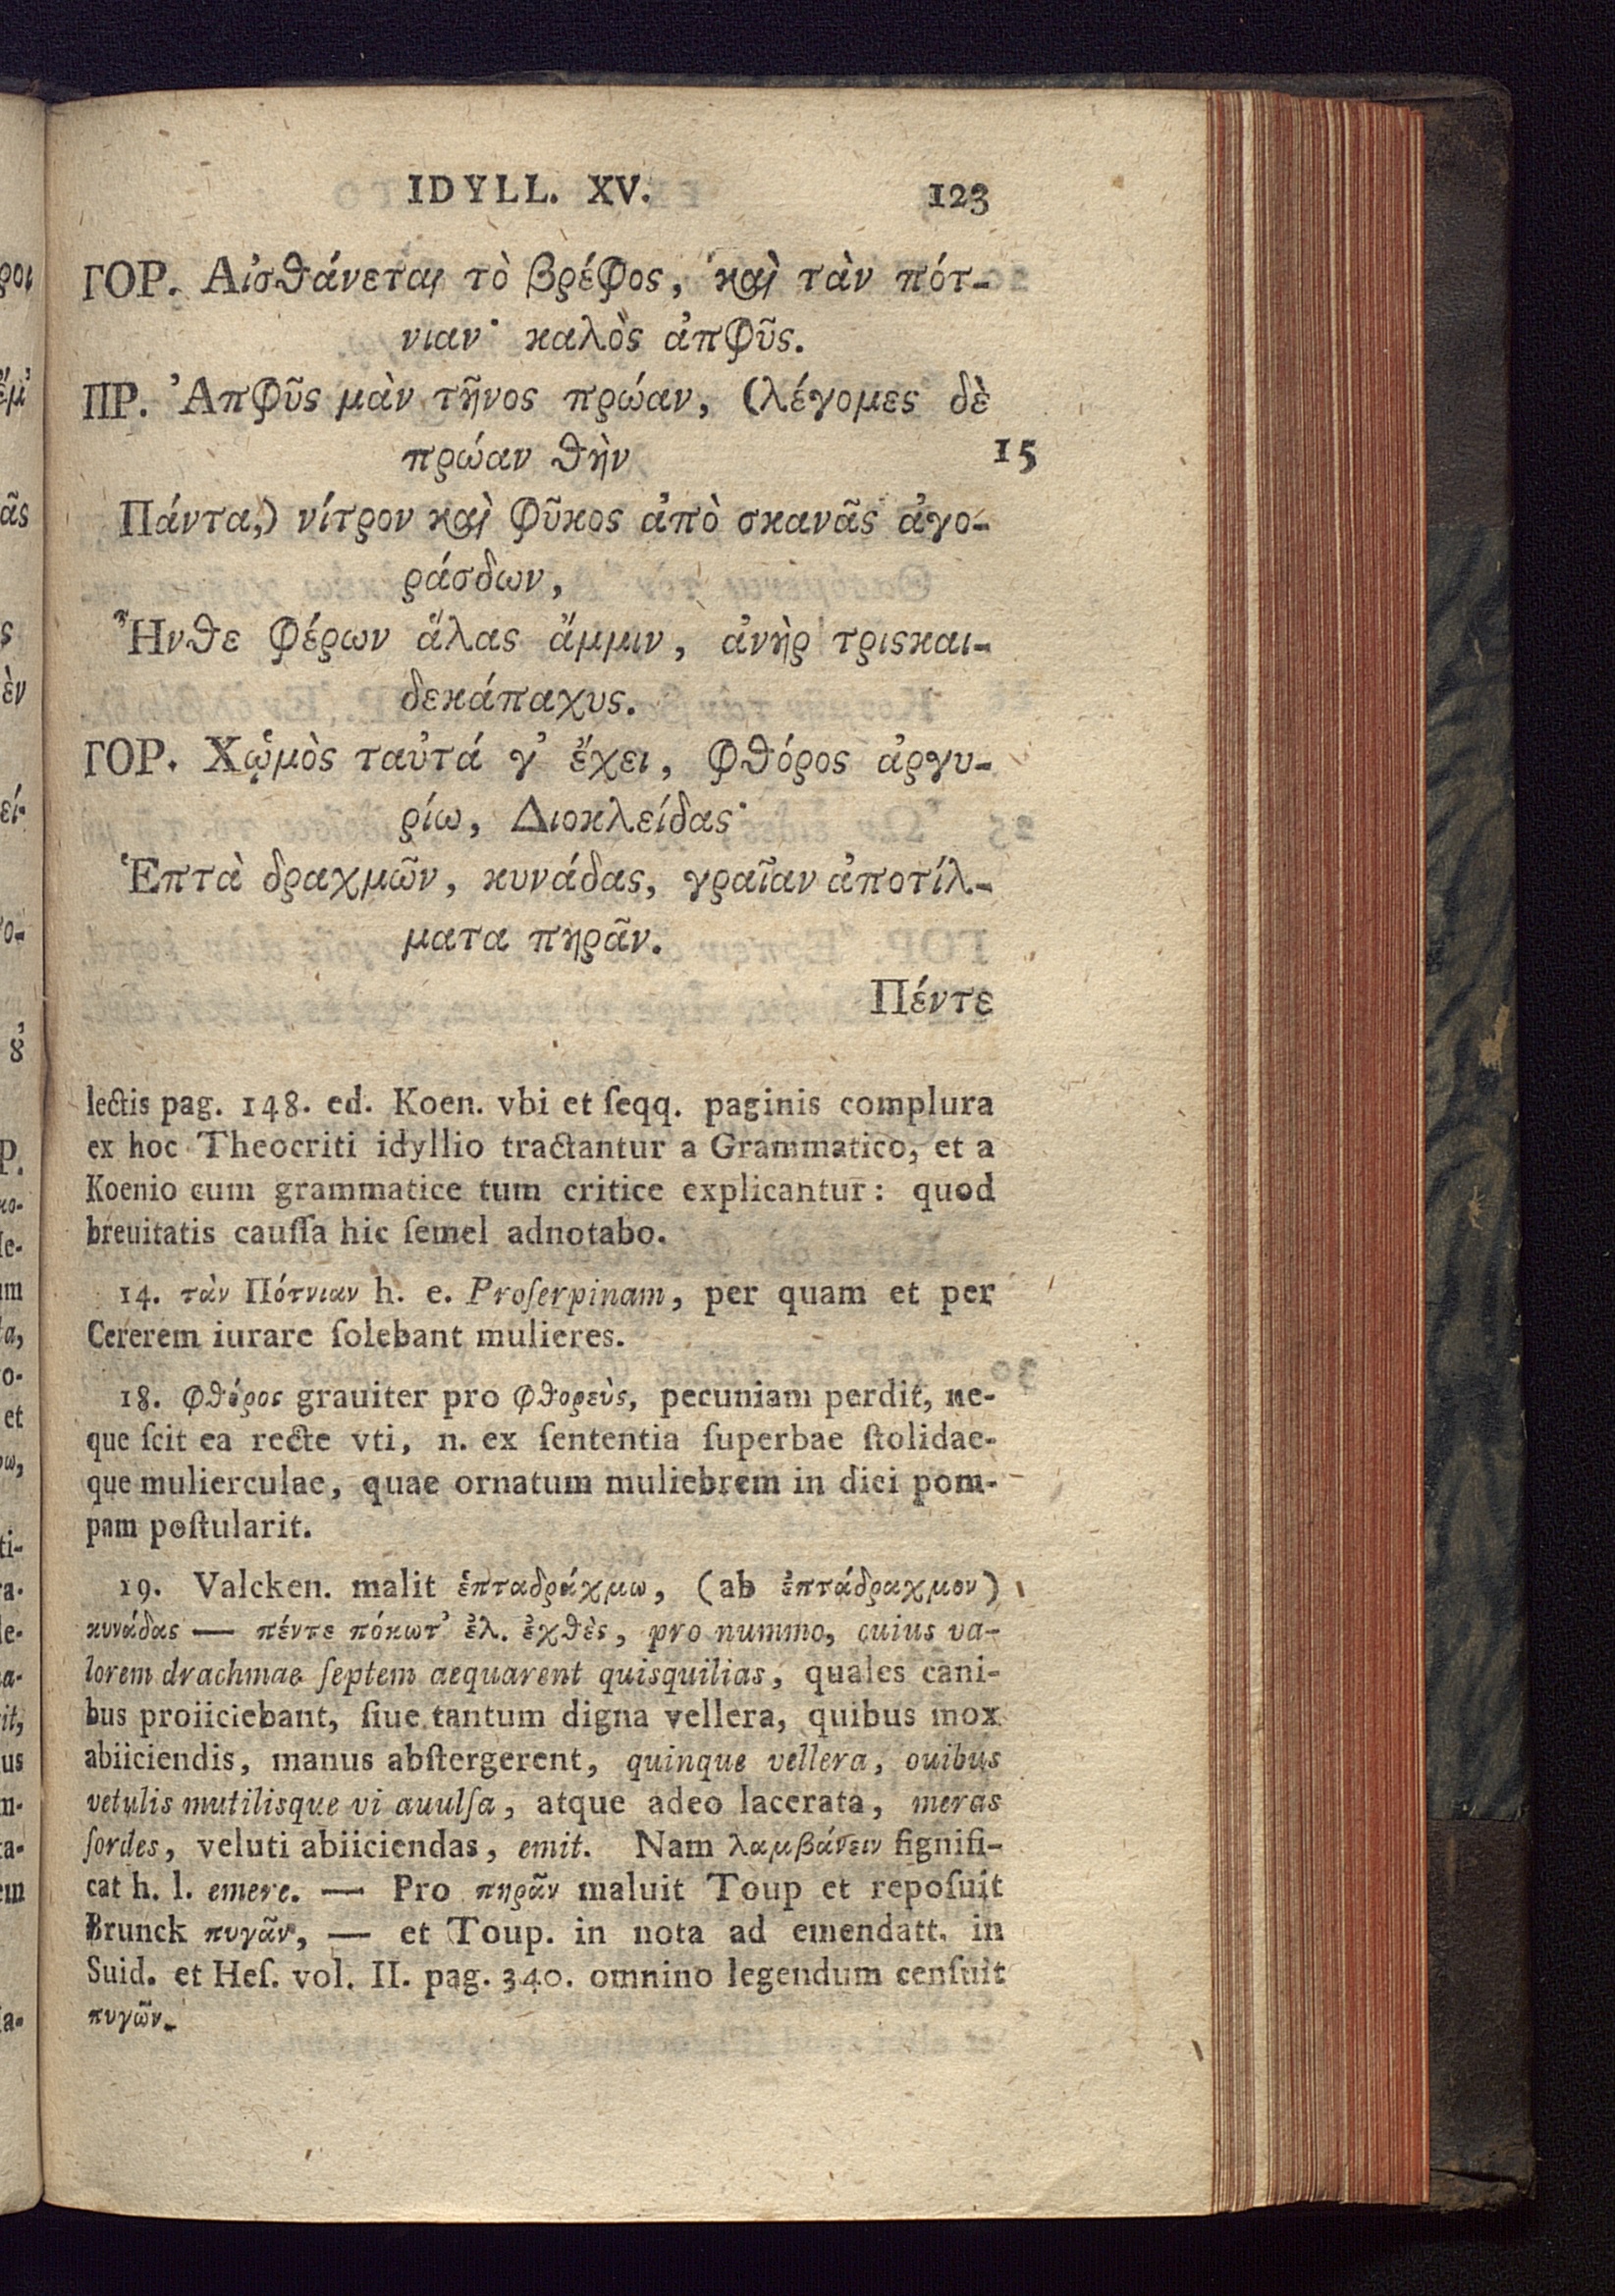 IDYLL. XV. 123
ΓΟΡ. Αἰσθάνεται τὸ βρέφος, καὶ τὰν πότ-
νιαν· καλὸς ἀπφῦς.
ΠΡ. Ἀπφῦς μὰν τῆνος πρώαν, (λέγομες δὲ
πρώαν θὴν 15
Πάντα,) νίτρον καὶ φῦκος ἀπὸ σκανᾶς ἀγο-
ράσδων,
Ἦνθε φέρων ἅλας ἄμμιν, ἀνὴρ τρισκαι-
δεκάπαχυς.
ΓΟΡ. Χᾠμὸς ταὐτά γ' ἔχει, φθόρος ἀργυ-
ρίω, Διοκλείδας·
Ἑπτὰ δραχμῶν, κυνάδας, γραῖαν ἀποτίλ-
ματα πηρᾶν.
Πέντε
lectis pag. 148. ed. Koen. vbi et ſeqq. paginis complura
ex hoc Theocriti idyllio tractantur a Grammatico, et a
Koenio cum grammatice tum critice explicantur: quod
breuitatis cauſſa hic ſemel adnotabo.
14. τὰν Πότνιαν h. e. Proſerpinam, per quam et per
Cererem iurare ſolebant mulieres.
18. φθόρος grauiter pro φθορεὺς, pecuniam perdit, ne-
que ſcit ea recte vti, n. ex ſententia ſuperbae ſtolidae-
que mulierculae, quae ornatum muliebrem in diei pom-
pam poſtularit.
19. Valcken. malit ἑπταδράχμω, (ab ἑπτάδραχμον)
κυνάδας — πέντε πόκωτ' ἐλ. ἐχθὲς, pro nummo, cuius va-
lorem drachmae ſeptem aequarent quisquilias, quales cani-
bus proiiciebant, ſiue tantum digna vellera, quibus mox
abiiciendis, manus abſtergerent, quinque vellera, ouibus
vetulis mutilisque vi auulſa, atque adeo lacerata, meras
ſordes, veluti abiiciendas, emit. Nam λαμβάνειν ſignifi-
cat h. l. emere. — Pro πηρᾶν maluit Toup et repoſuit
Brunck πυγᾶν, — et Toup. in nota ad emendatt. in
Suid. et Heſ. vol. II. pag. 340. omnino legendum cenſuit
πυγῶν.